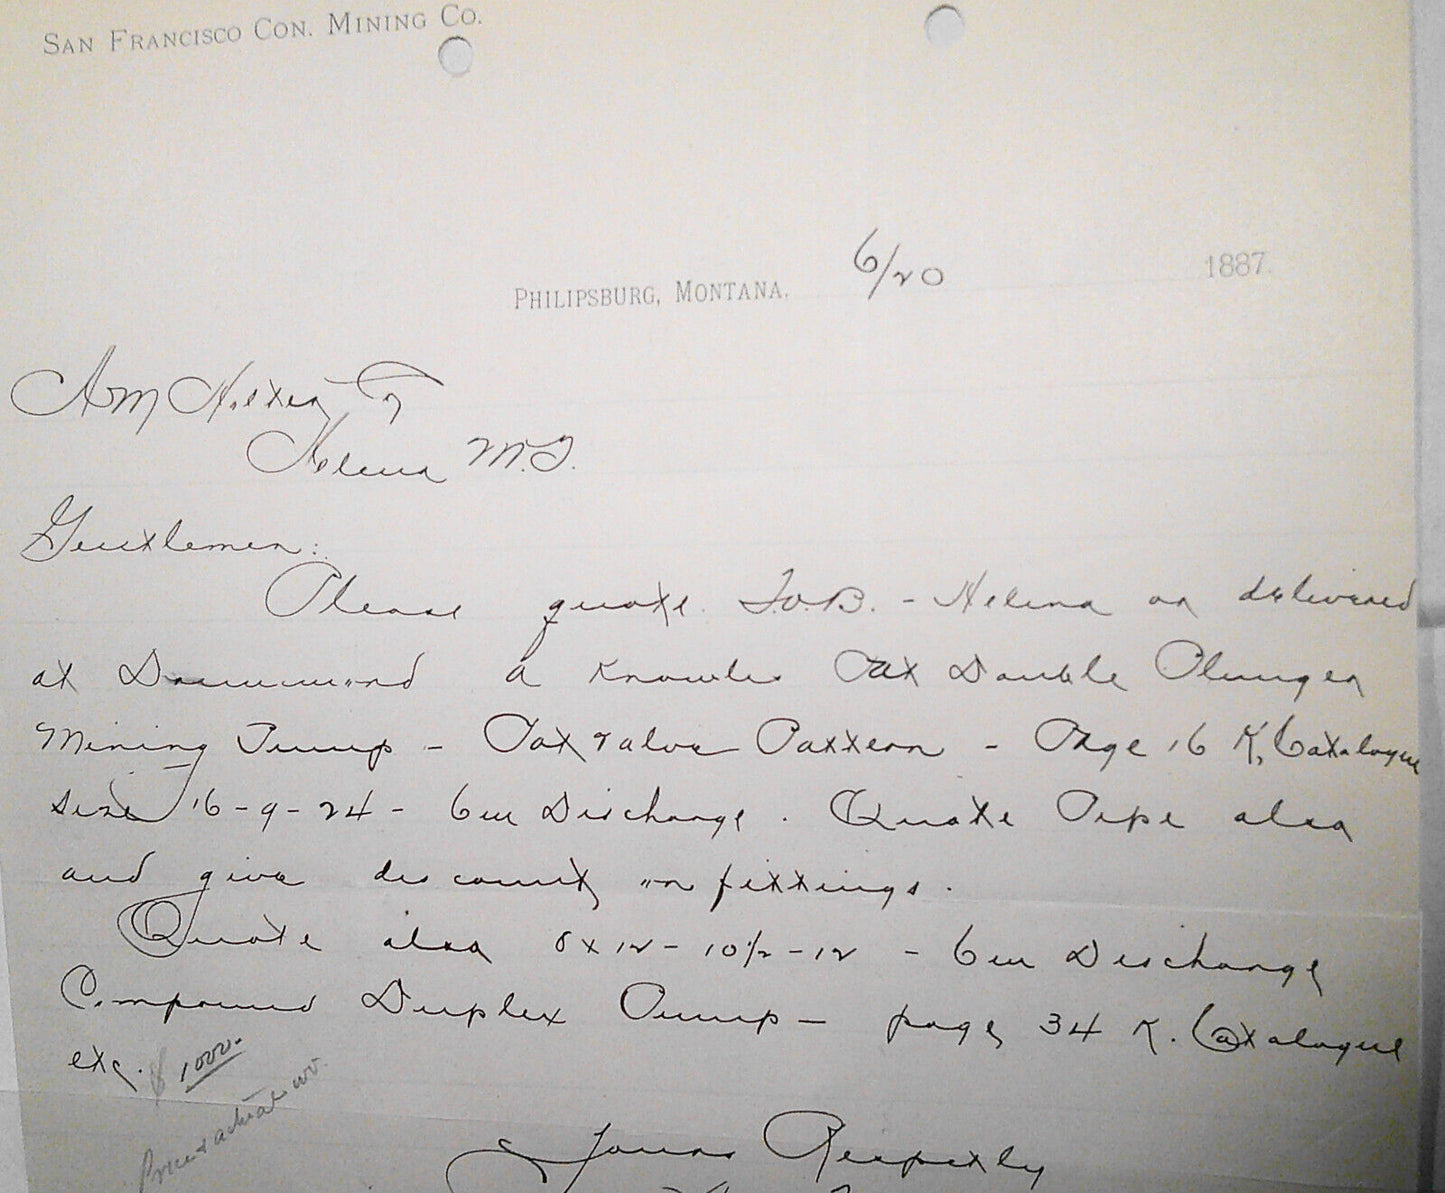 San Francisco Con. Mining Co.
Philipsburg, Montana. 6/20 1887.
A M Holter & Co
Helena M.T.
Gentlemen:
Please quote F.O.B. - Helena or delivered
at Drummond a Knowles Pat Double Plunger
Mining Pump - Pot Valve Pattern - Page 16 K. Catalogue
size 16-9-24 - 6in Discharge. Quote Pipe also
and give discount on fittings.
Quote also 8x12-10½-12 - 6in Discharge
Compound Duplex Pump - page 34 K. Catalogue
etc. $1000.
Price & actual wt.
Yours Respectly